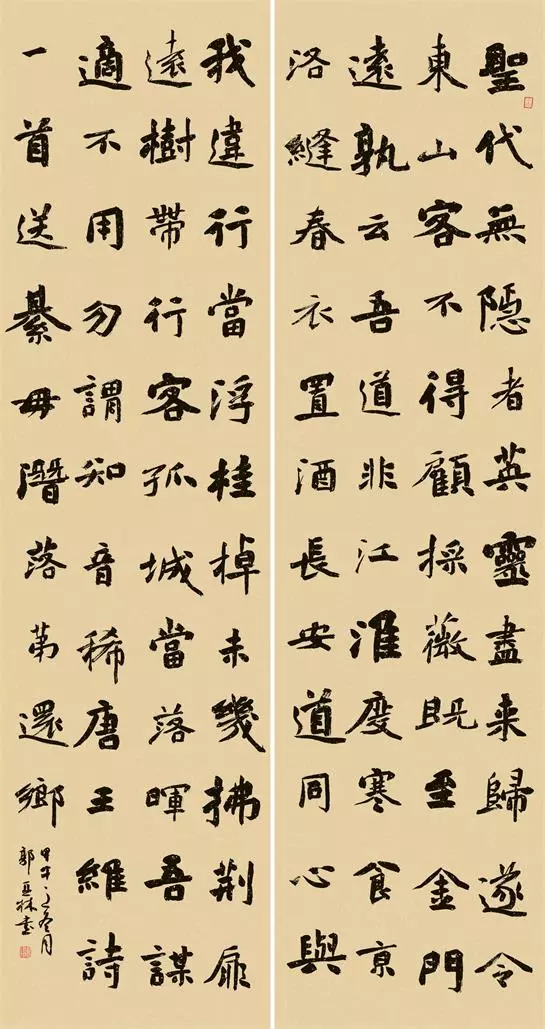 聖代無隐者英靈盡来歸遂令
東山客不得顧採薇既至金門
遠孰云吾道非江淮度寒食京
洛縫春衣置酒長安道同心與
我違行當浮桂棹未幾拂荆扉
遠樹帶行客孤城當落暉吾謀
適不用勿謂知音稀唐王維詩
一首送綦毋潛落第還鄉
甲午之冬月
郭亞林書